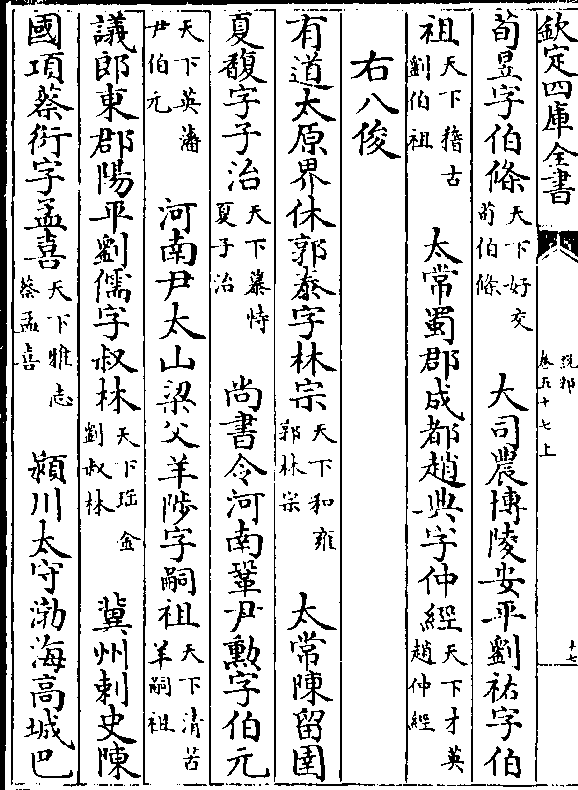 欽定四庫全書
說郛
卷五十七上
十七
荀昱字伯條天下好交荀伯條 大司農博陵安平劉祐字伯
祖天下稽古劉伯祖 太常蜀郡成都趙典字仲經天下才英趙仲經
右八俊
有道太原界休郭泰字林宗天下和雍郭林宗 太常陳留圉
夏馥字子治天下慕恃夏子治 尚書令河南鞏尹勲字伯元
天下英藩尹伯元 河南尹太山梁父羊陟字嗣祖天下清苦羊嗣祖
議郎東郡陽平劉儒字叔林天下珤金劉叔林 冀州刺史陳
國項蔡衍字孟喜天下雅志蔡孟喜 潁川太守渤海高城巴